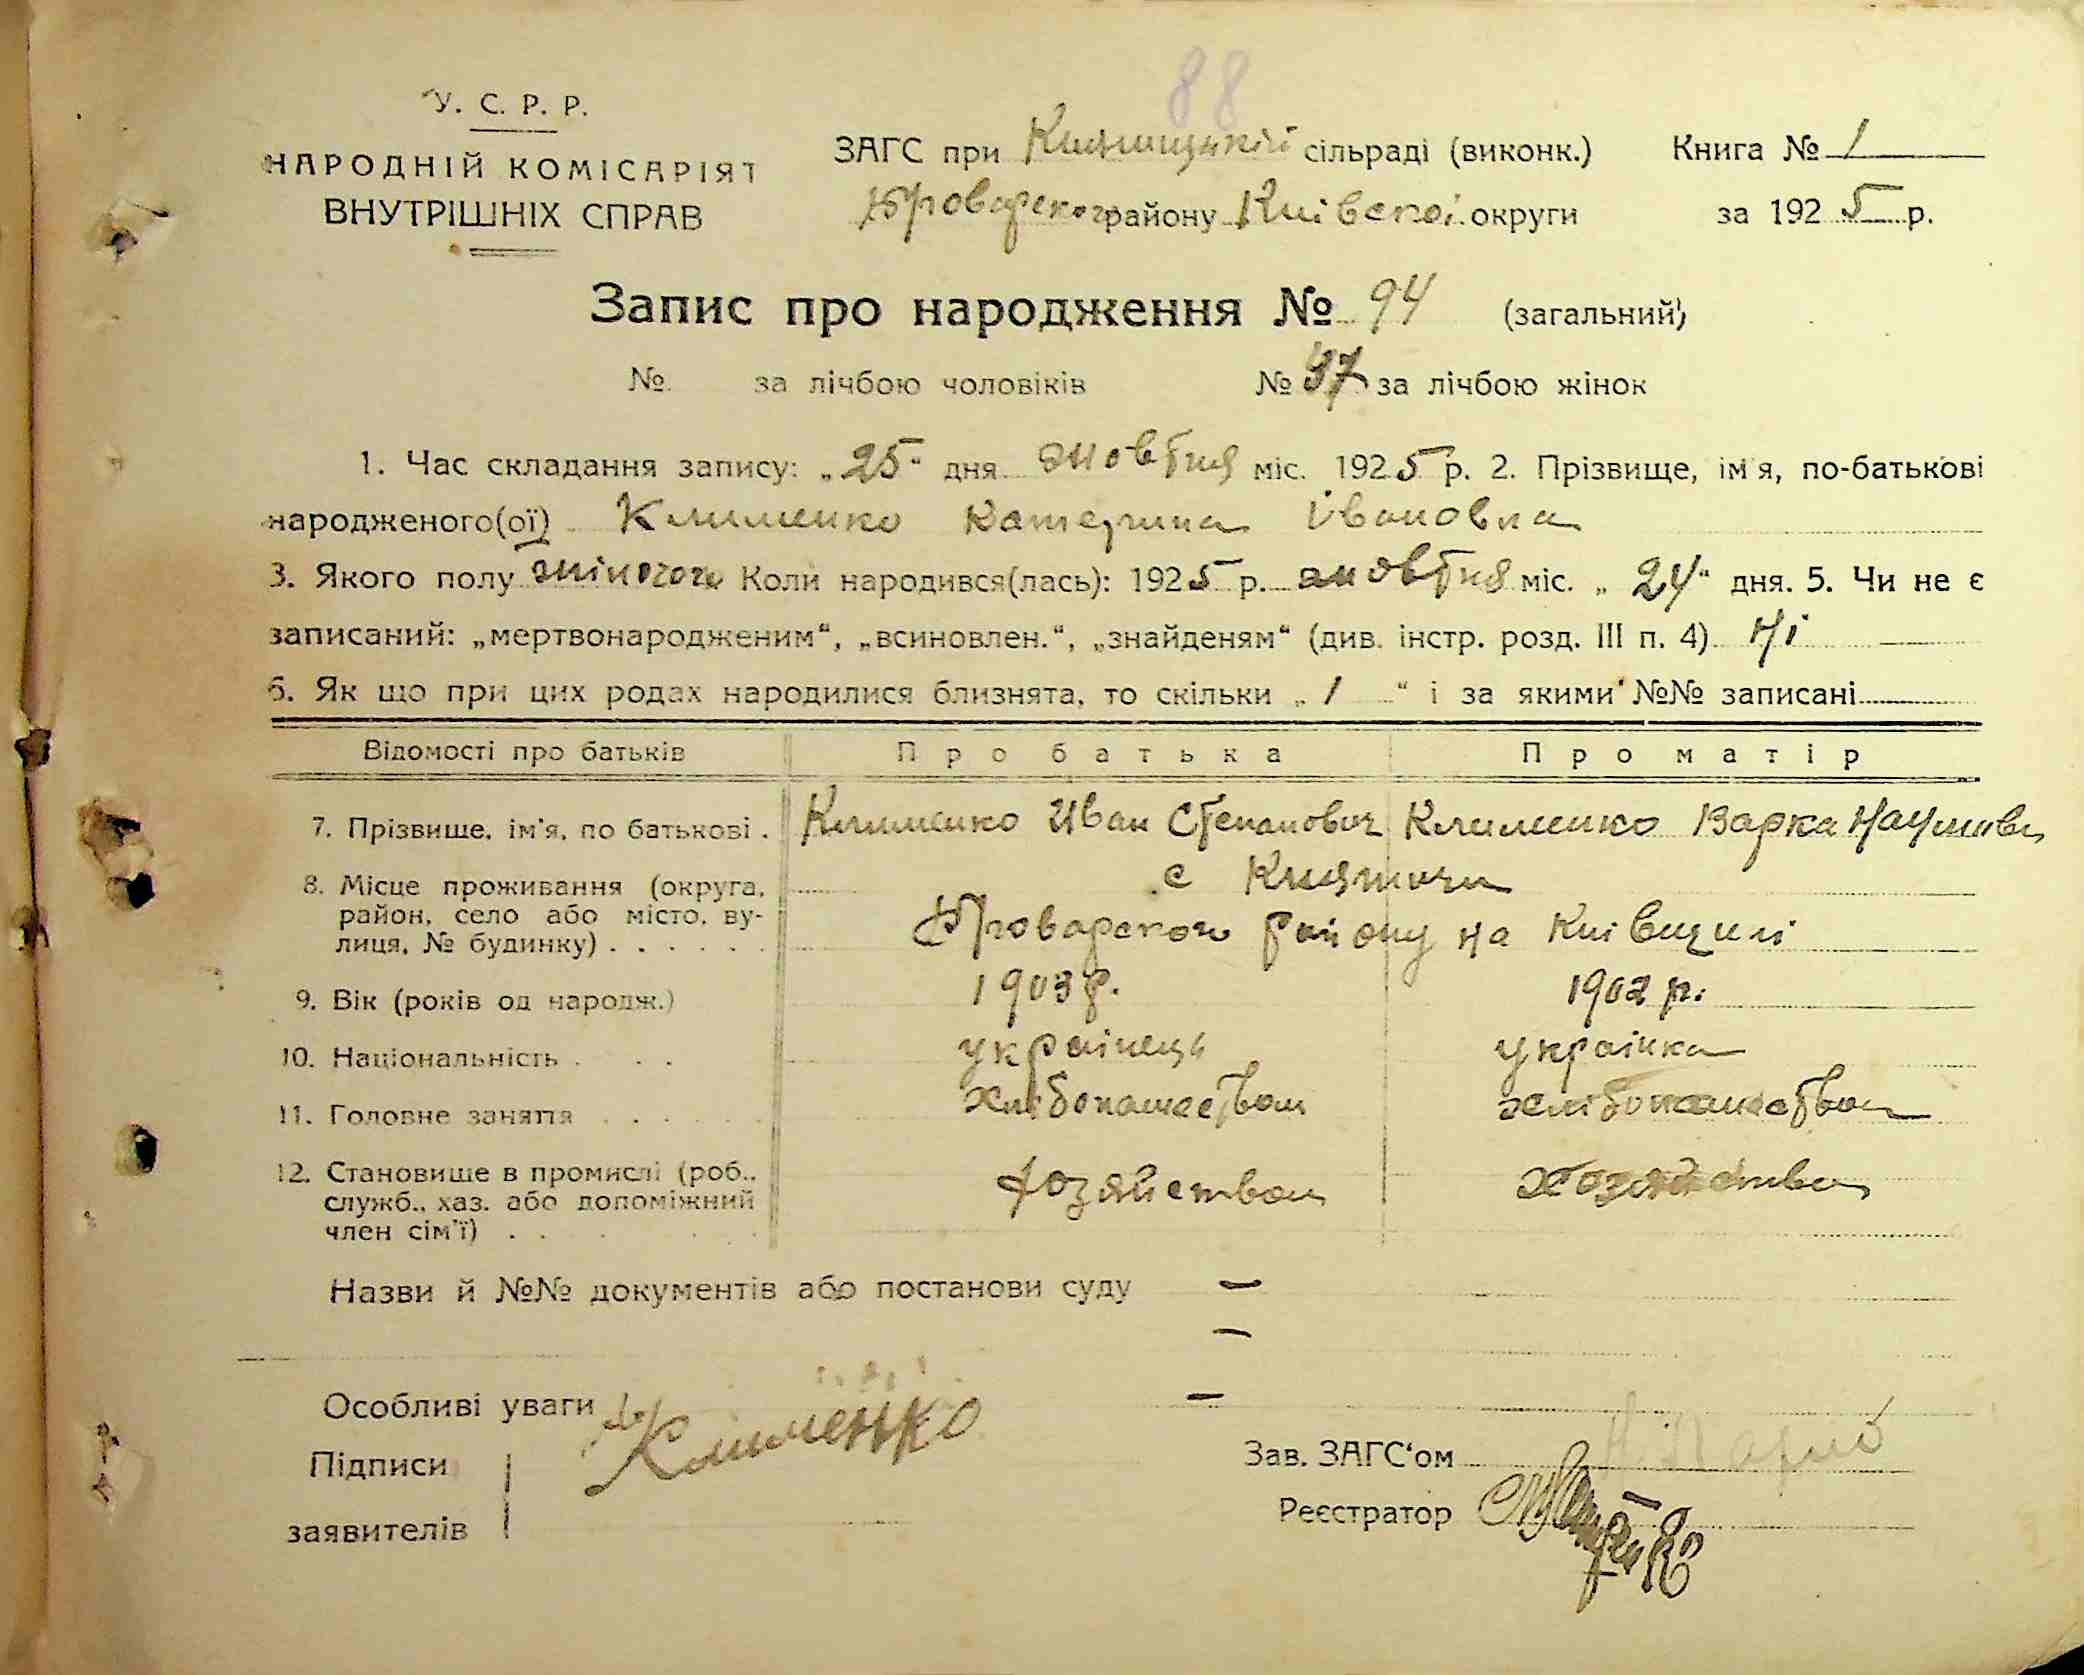 88
У. С. Р. Р.
НАРОДНІЙ КОМІСАРІЯТ
ВНУТРІШНІХ СПРАВ
ЗАГС при Княжицькій сільраді (виконк.) Книга № 1
Броварского району Київскої округи за 1925 р.
Запис про народження № 94 (загальний)
№ за лічбою чоловіків № 47 за лічбою жінок
1. Час складання запису: „25“ дня жовтня міс. 1925 р. 2. Прізвище, ім'я, по-батькові
народженого(ої) Клименко Катерина Ивановна
3. Якого полу жіночого Коли народився(лась): 1925 р. жовтня міс. „24“ дня. 5. Чи не є
записаний: „мертвонародженим“, „всиновлен.“, „знайденям“ (див. інстр. розд. III п. 4) Ні
6. Як що при цих родах народилися близнята, то скільки „ / “ і за якими №№ записані
Відомості про батьків Про батька Про матір
7. Прізвище, ім'я, по батькові . Клименко Иван Степанович Клименко Варка
8. Місце проживання (округа, район, село або місто, вулиця, № будинку) . . . . . . с Княжичи
Броварского району на Київщині
9. Вік (років од народж.) 1903 р. 1902 р.
10. Національність . . . українець українка
11. Головне заняття . . . . . хлібопашеством хлібопашеством
12. Становище в промислі (роб., служб., хаз. або допоміжний член сім'ї) . . хозяйством хозяйством
Назви й №№ документів або постанови суду —
—
Особливі уваги —
Підписи заявителів Клименко
Зав. ЗАГС‘ом
Реєстратор